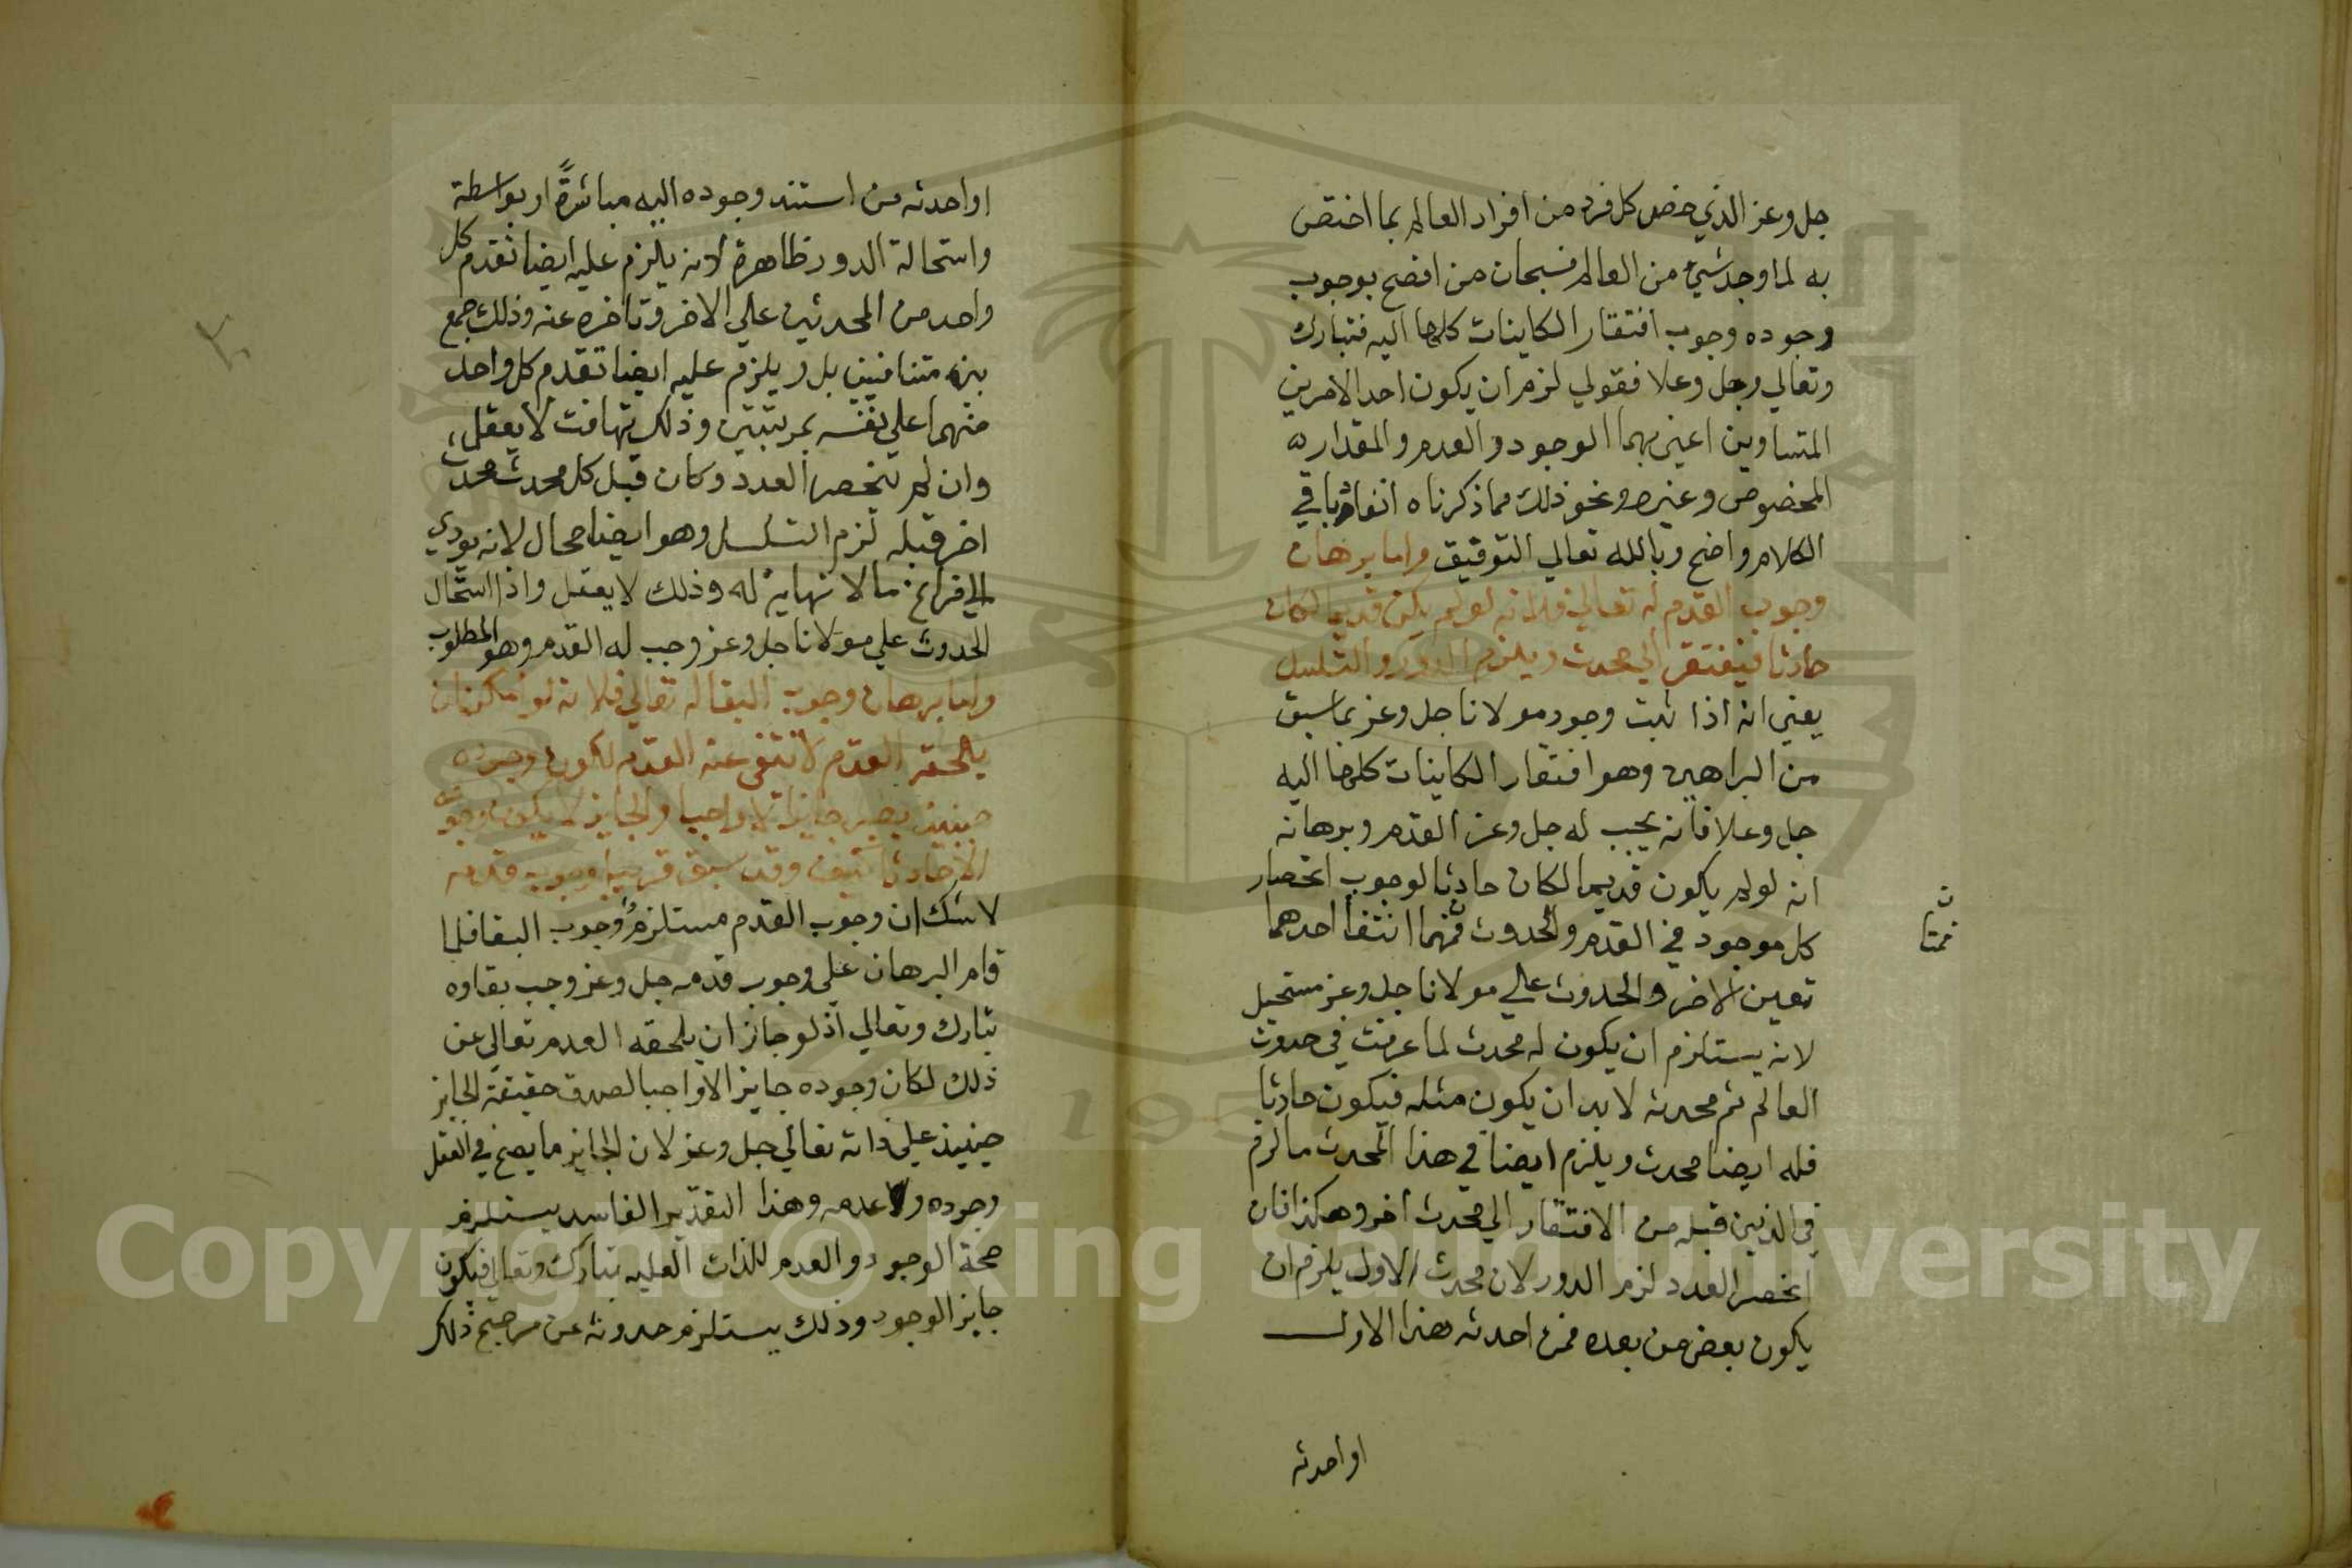 جل وعز الذي خص كل فرد من افراد العالم بما اختص
به لما وجد شيء من العالم فسبحان من افصح بوجوب
وجوده وجوب افتقار الكاينات كلها اليه فتبارك
وتعالي وجل وعلا فقولي لزم ان يكون احد الامرين
المتساوين اعني بهما الوجود والعدم والمقدار
المخصوص وغيره ونحو ذلك مما ذكرناه انفا وباقي
الكلام واضح وبالله تعالي التوفيق واما برهان
وجوب القدم له تعالي فلانه لو لم يكن قديما لكان
حادثا فيفتقر الي محدث ويلزم الدور والتسلسل
يعني انه اذا ثبت وجود مولانا جل وعز بما سبق
من البراهين وهو افتقار الكاينات كلها اليه
جل وعلا فانه يجب له جل وعز القدم وبرهانه
انه لو لم يكون قديما لكان حادثا لوجوب انحصار
كل موجود في القدم والحدوث فمهما انتفا احدهما
تعين الاخر والحدوث علي مولانا جل وعز مستحيل
لانه يستلزم ان يكون له محدث لما عرفت في حدوث
العالم ثم محدثه لا بد ان يكون مثله فيكون حادثا
فله ايضا محدث ويلزم ايضا في هذا المحدث ما لزم
في الذين قبله من الافتقار الي محدث اخر وهكذا فان
انحصر العدد لزم الدور لان محدث الاول يلزم ان
يكون بعض من بعده فمن احدثه هذا الاول
او احدثه
او احدثه من استند وجوده اليه مباشرة او بواسطة
واستحالة الدور ظاهرة لانه يلزم عليه ايضا تقدم كل
واحد من المحدثين علي الاخر وتاخره عنه وذلك جمع
بين متنافيين بل ويلزم عليه ايضا تقدم كل واحد
منهما علي نفسه بمرتبتين وذلك تهافت لا يعقل
وان لم تنحصر العدد وكان قبل كل محدث محدث
اخر قبله لزم التسلسل وهو ايضا محال لانه يودي
الي فراغ ما لا نهاية له وذلك لا يعقل واذا استحال
الحدوث علي مولانا جل وعز وجب له القدم وهو المطلوب
واما برهان وجوب البقا له تعالي فلانه لو امكن ان
يلحقه العدم لانتفى عنه القدم لكون وجوده
حينيذ يصير جايزا لا واجبا والجايز لا يكون وجوده
الا حادثا كيف وقد سبق قريبا وجوب قدمه
لا شك ان وجوب القدم مستلزم وجوب البقا فلما
قام البرهان علي وجوب قدمه جل وعز وجب بقاوه
تبارك وتعالي اذ لو جاز ان يلحقه العدم تعالي عن
ذلك لكان وجوده جايزا لا واجبا لصدق حقيقة الجايز
حينيذ علي ذاته تعالي جل وعز لان الجايز ما يصح في العقل
وجوده وعدمه وهذا التقدير الفاسد يستلزم
صحة الوجود والعدم للذات العليه تبارك وتعالي فيكون
جايز الوجود وذلك يستلزم حدوثه عن مرجح ذلك
Copyright © King Saud University